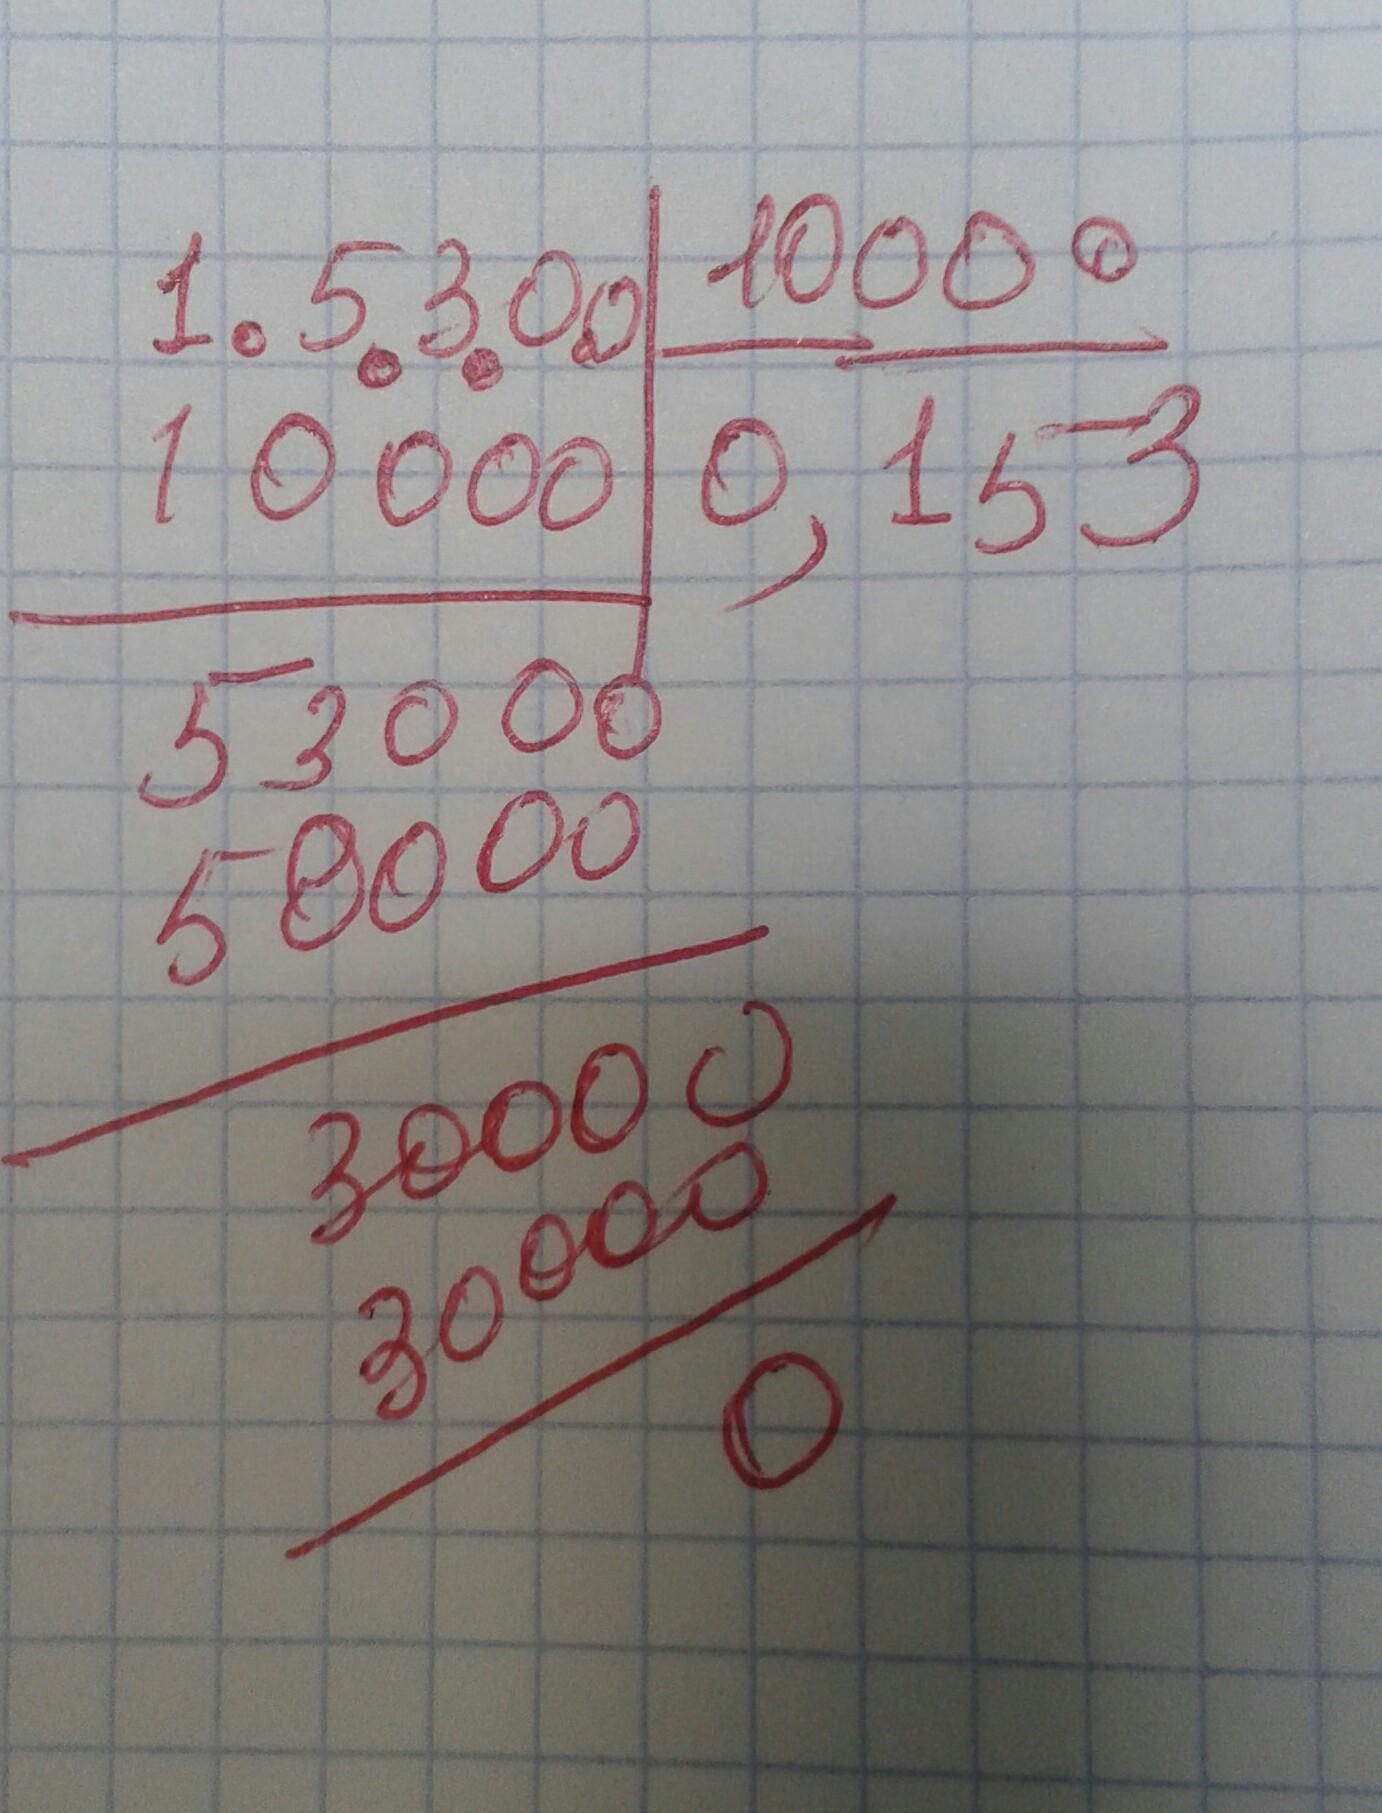 1.5.3.0.0 10000
10000 0,153
53000
50000
30000
30000
0